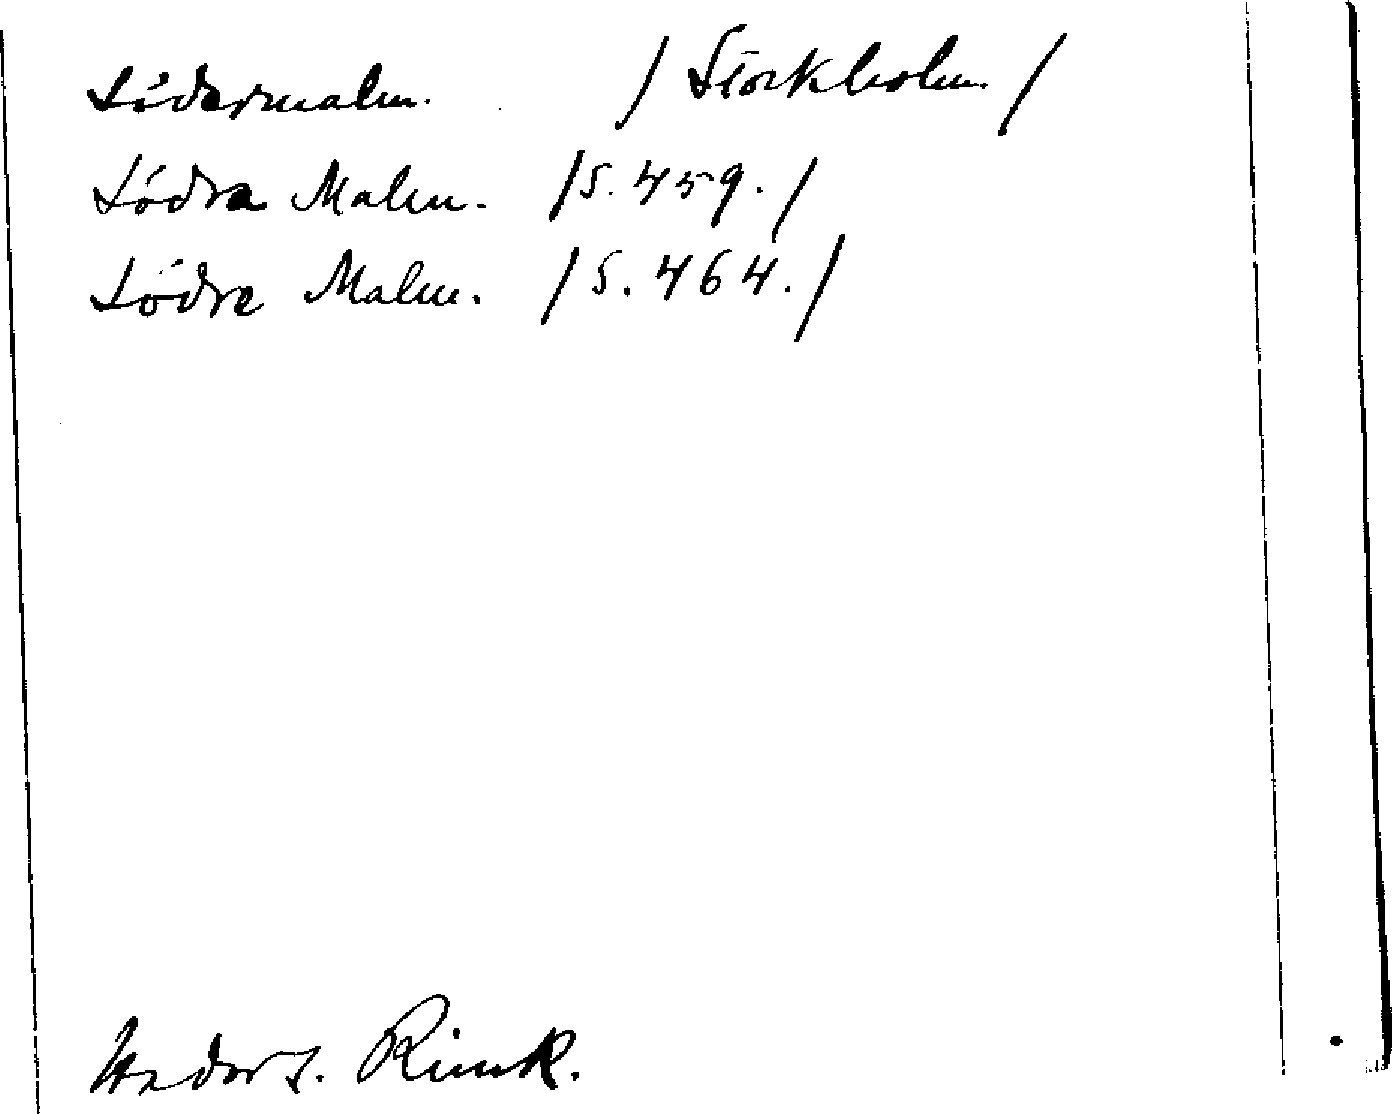 Södermalm. / Stockholm. /
Södra Malm. /S. 459. /
Södre Malm. /S. 464. /